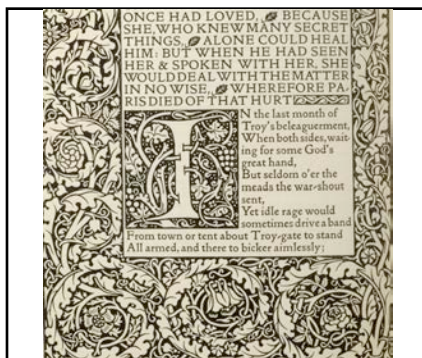 ONCE HAD LOVED, BECAUSE
SHE, WHO KNEW MANY SECRET
THINGS, ALONE COULD HEAL
HIM: BUT WHEN HE HAD SEEN
HER & SPOKEN WITH HER, SHE
WOULD DEAL WITH THE MATTER
IN NO WISE, WHEREFORE PA-
RIS DIED OF THAT HURT
IN the last month of
Troy's beleaguerment,
When both sides, wait-
ing for some God's
great hand,
But seldom o'er the
meads the war-shout
sent,
Yet idle rage would
sometimes drive a band
From town or tent about Troy-gate to stand
All armed, and there to bicker aimlessly;